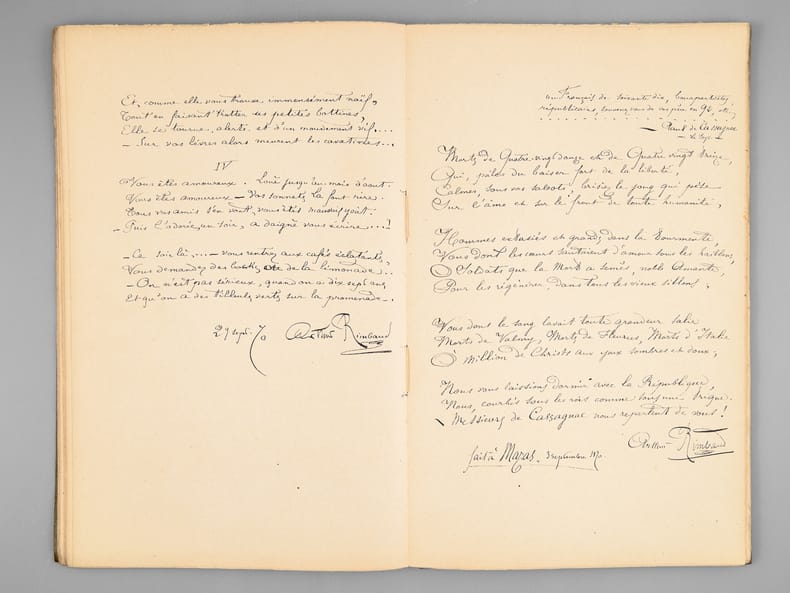 Et, comme elle vous trouve immensément naïf,
Tout en faisant trotter ses petites bottines,
Elle se tourne, alerte et d'un mouvement vif...
— Sur vos lèvres alors meurent les cavatines...
IV
Vous êtes amoureux. Loué jusqu'au mois d'août.
Vous êtes amoureux — Vos sonnets La font rire.
Tous vos amis s'en vont, vous êtes mauvais goût.
— Puis l'adorée, un soir, a daigné vous écrire....!
— Ce soir-là,... — vous rentrez aux cafés éclatants,
Vous demandez des bocks ou de la limonade..
— On n'est pas sérieux, quand on a dix sept ans
Et qu'on a des tilleuls verts sur la promenade.
29 sept. 70 Arthur Rimbaud
Français de soixante-dix, bonapartistes,
républicains, souvenez-vous de vos pères en 92, etc.
— Paul de Cassagnac
— Le Pays. —
Morts de Quatre-vingt-douze et de Quatre-vingt-treize,
Qui, pâles du baiser fort de la liberté,
Calmes, sous vos sabots, brisiez le joug qui pèse
Sur l'âme et sur le front de toute humanité,
Hommes extasiés et grands dans la tourmente,
Vous dont les cœurs sautaient d'amour sous les haillons,
O Soldats que la Mort a semés, noble Amante,
Pour les régénérer, dans tous les vieux sillons;
Vous dont le sang lavait toute grandeur salie
Morts de Valmy, Morts de Fleurus, Morts d'Italie
O million de Christs aux yeux sombres et doux;
Nous vous laissions dormir avec la République,
Nous, courbés sous les rois comme sous une trique.
— Messieurs de Cassagnac nous reparlent de vous!
Arthur Rimbaud
fait à Mazas, 3 septembre 1870